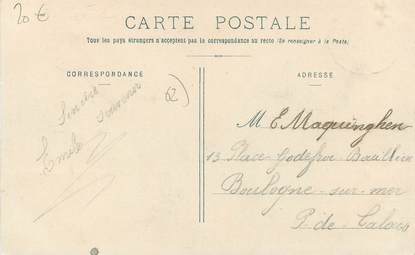 20 €
CARTE POSTALE
Tous les pays étrangers n'acceptent pas la correspondance au recto (Se renseigner à la Poste)
CORRESPONDANCE
62
Sincère
souvenir
Emile
ADRESSE
M. E Maquinghen
13 Place Godefroi Bouillon
Boulogne-sur-mer
P. de Calais